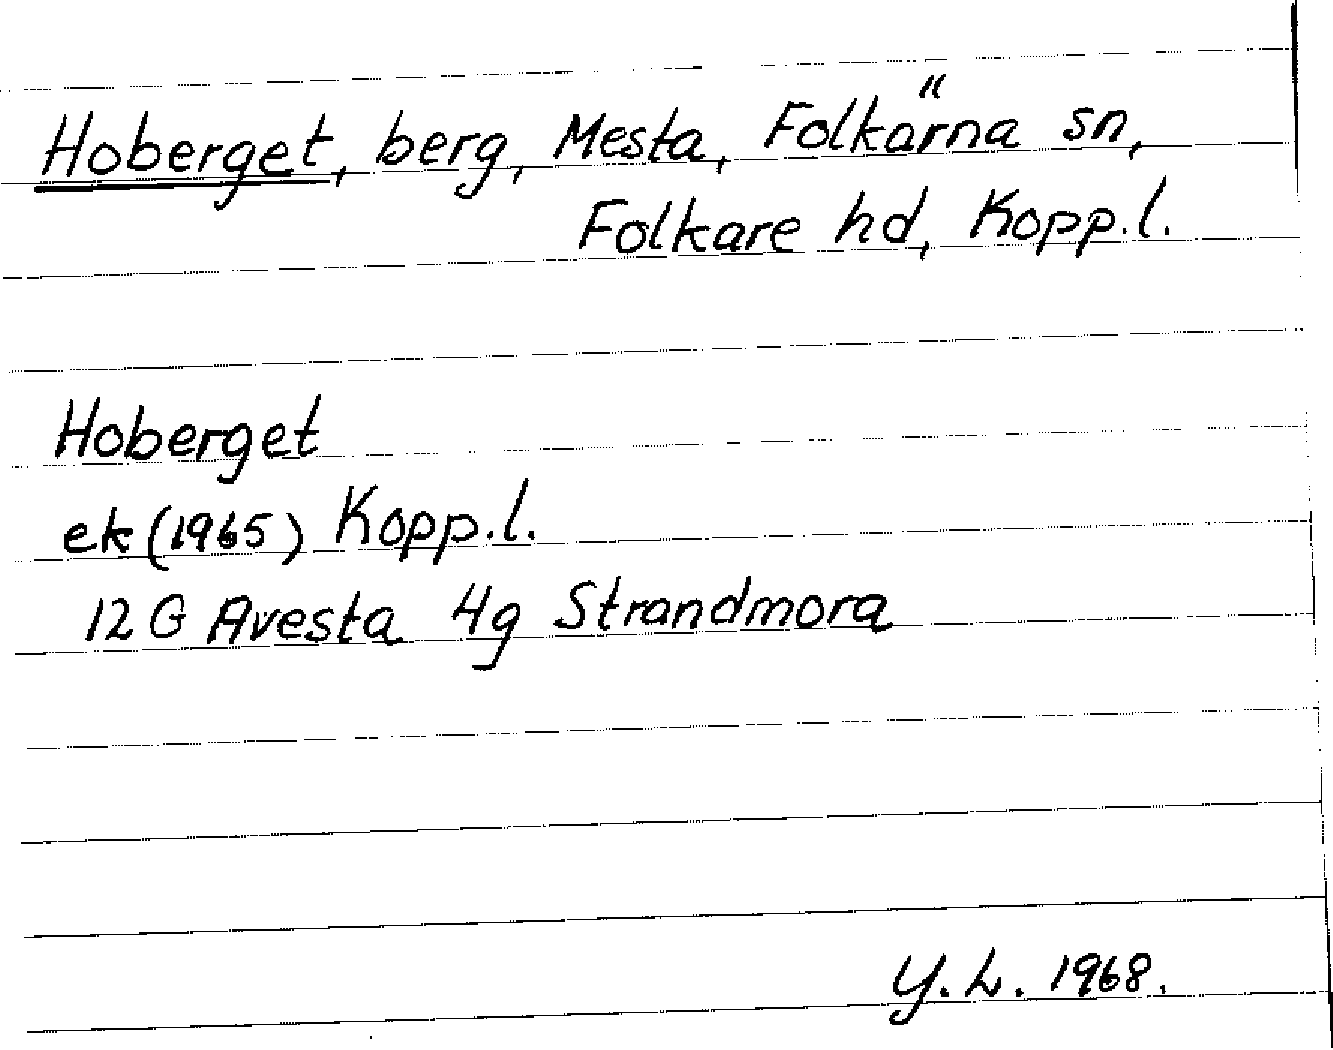 Hoberget, berg, Mesta, Folkärna sn,
Folkare hd, Kopp.l.
Hoberget
ek (1965) Kopp.l.
12 G Avesta 4g Strandmora
Y.L. 1968.